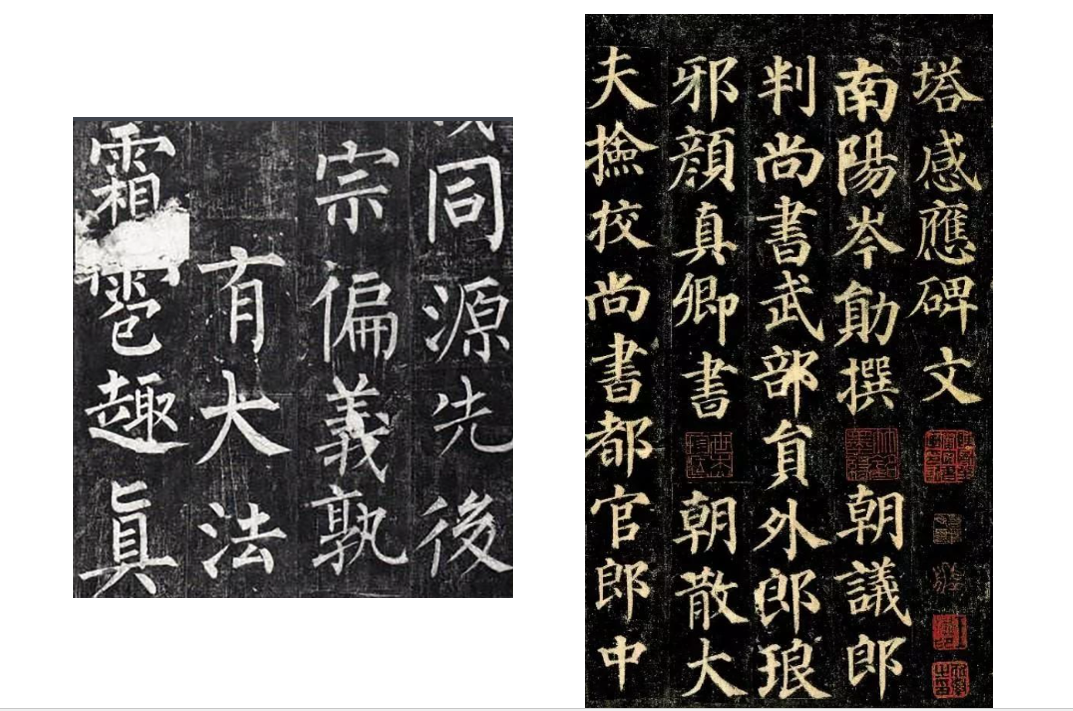 同源先後
宗偏義孰
有大法
霜雹趣眞
塔感應碑文
南陽岑勛撰 朝議郎
判尚書武部貟外郎琅
邪顔真卿書 朝散大
夫撿校尚書都官郎中